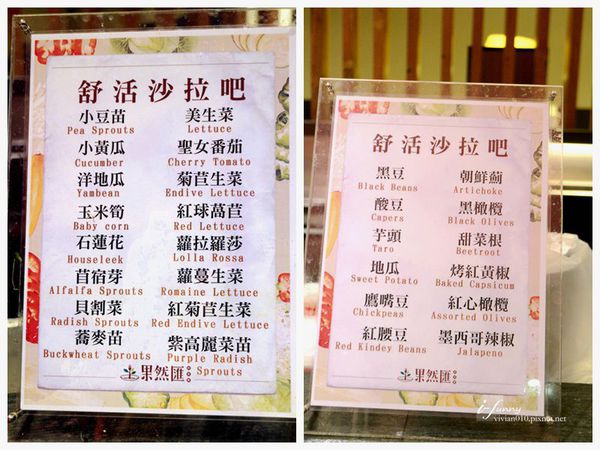 舒活沙拉吧
小豆苗 美生菜
Pea Sprouts Lettuce
小黃瓜 聖女番茄
Cucumber Cherry Tomato
洋地瓜 菊苣生菜
Yambean Endive Lettuce
玉米筍 紅球萵苣
Baby corn Red Lettuce
石蓮花 蘿拉羅莎
Houseleek Lolla Rossa
苜宿芽 蘿蔓生菜
Alfalfa Sprouts Romaine Lettuce
貝割菜 紅菊苣生菜
Radish Sprouts Red Endive Lettuce
蕎麥苗 紫高麗菜苗
Buckwheat Sprouts Purple Radish Sprouts
果然匯
舒活沙拉吧
黑豆 朝鮮薊
Black Beans Artichoke
酸豆 黑橄欖
Capers Black Olives
芋頭 甜菜根
Taro Beetroot
地瓜 烤紅黃椒
Sweet Potato Baked Capsicum
鷹嘴豆 紅心橄欖
Chickpeas Assorted Olives
紅腰豆 墨西哥辣椒
Red Kindey Beans Jalapeno
果然匯
i-funny
vivian010.pixnet.net